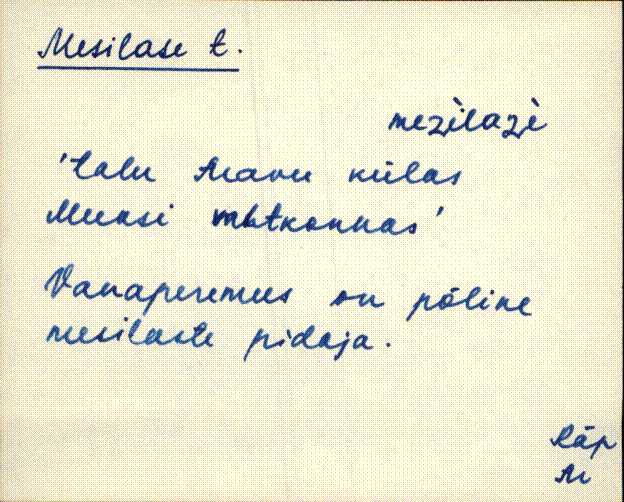 Mesilase t.
mezìlazì
'talu Aravu külas
Meeksi konnas'
Vanaperemees on põline
mesilaste pidaja.
Räp
Ar